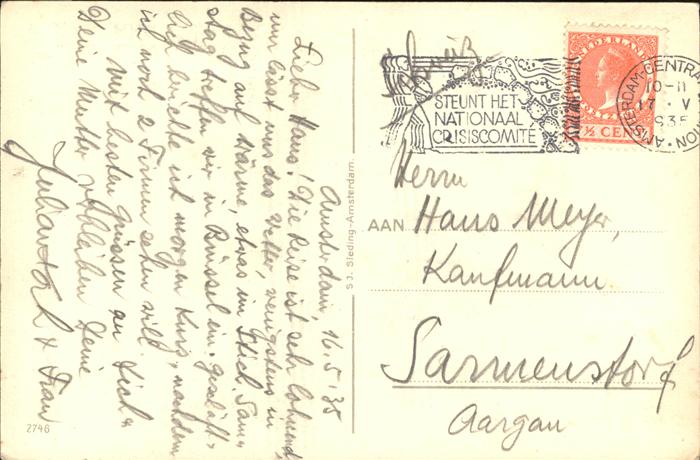 Amsterdam, 16.5.35
Lieber Hans! Die Reise ist sehr lohnend,
nur lässt uns das Wetter, wenigstens in
Bezug auf Wärme, etwas im Stich. Sams-
tag treffen wir in Brüssel ein. Geschäft-
lich berichte ich morgen kurz, nachdem
ich noch 2 Firmen sehen will.
Mit besten Grüssen an Dich &
Deine Mutter verbleiben Deine
& Frau
2746
S.J. Sleding-Amsterdam.
Schweiz
STEUNT HET
NATIONAAL
CRISISCOMITE
NEDERLAND
7½ CENT
AMSTERDAM-CENTRAAL STATION
10-11
17 . V
1935
AAN
Herrn
Hans Meyer,
Kaufmann
Sarmenstorf
Aargau